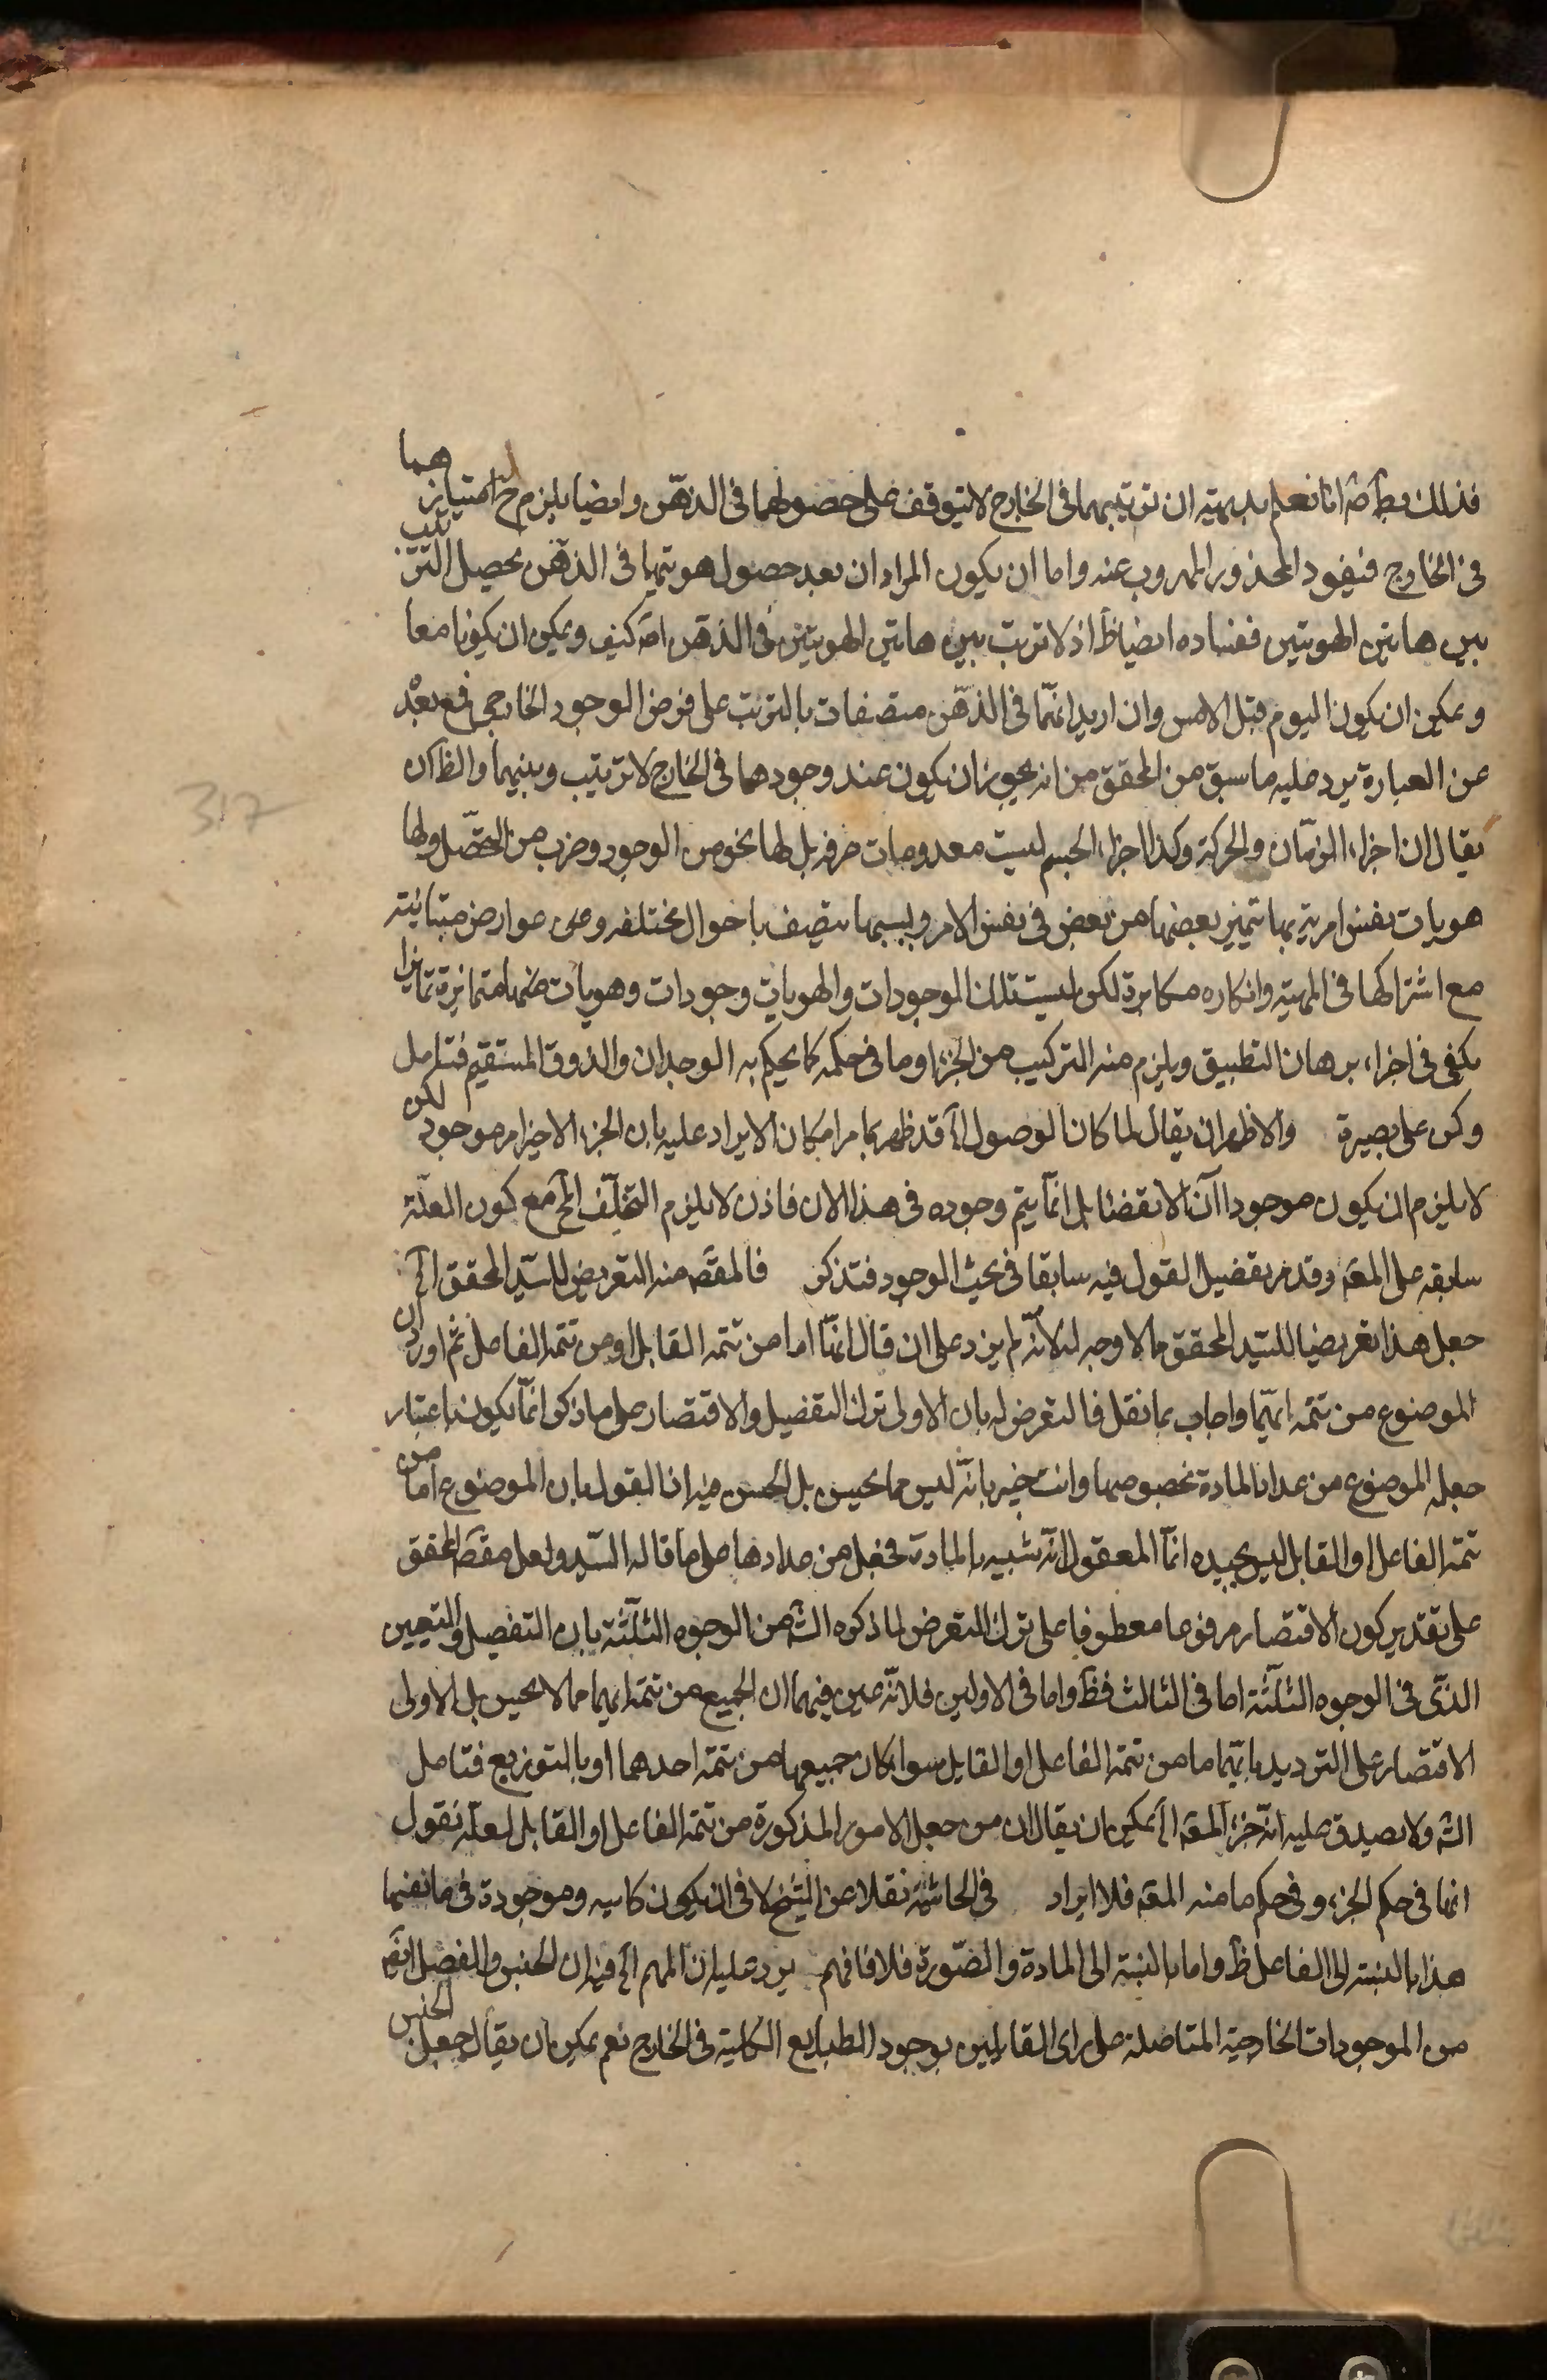 فذلك بط ضرة انا نعلم بديهة ان ترتيبهما فى الخارج لا يتوقف على حصولهما فى الذهن وايضا يلزم ح امتيازهما
فى الخارج فيعود المحذور المهروب عنه واما ان يكون المراد ان بعد حصول هويتهما فى الذهن يحصل الترتيب
بين هاتين الهويتين ففساده ايضا ظ اذ لا ترتب بين هاتين الهويتين فى الذهن اصلا كيف ويمكن ان يكونا معا
ويمكن ان يكون اليوم قبل الامس وان اريد انهما فى الذهن متصفات بالترتب على فرض الوجود الخارجى فمع بعده
عن العبارة يرد عليه ما سبق من المحقق من انه يجوز ان يكون عند وجودهما فى الخارج لا ترتيب وبينهما والظ ان
يقال ان اجزاء الزمان والحركة وكذا اجزاء الجسم ليست معدومات صرفه بل لها نحو من الوجود وضرب من التحصّل ولها
هويات نفس امرية بها تتميز بعضها من بعض فى نفس الامر وبسببها تتصف باحوال مختلفه وهى عوارض متباينته
مع اشتراكها فى المهية وانكاره مكابرة لكن ليست تلك الموجودات والهويات وجودات وهويات ضمها متمايزة تمايزا
يكفى فى اجزاء برهان التطبيق ويلزم منه التركيب من الجزء او ما فى حكمه كما يحكم به الوجدان والذوق المستقيم فتامل
وكن على بصيرة والاظهر ان يقال لما كان الوصول الخ قد ظهر بما مر امكان الايراد عليه بان الجزء الاخير امر موجود لكن
لا يلزم ان يكون موجودا آن الانقضا بل انما يتم وجوده فى هذا الان فاذن لا يلزم التخلّف الخ مع كون العلّة
سابقه على المعه وقد مر تفصيل القول فيه سابقا فى بحث الموجود فتذكر فالمقصّ منه التعريض للسيد المحقق الخ
جعل هذا تعريضا للسيد المحقق مما لا وجه له لانّه لم يزد على ان قال انها اما من تتمه القابل او من تتمه الفاعل ثم اورد ان
الموضوع من تتمه ايهما واجاب بما نقل فالتعرض له بان الاولى ترك التفصيل والاقتصار على ما ذكر انما يكون باعتبار
جعله الموضوع من عداد المادة بخصوصها وانت خبير بانّه ليس مما يحسن بل الحسن فيه اذ القول بان الموضوع اما من
تتمه الفاعل او القابل ليس بجيده انما المعقول انه شبيه بالمادة فجعل من عدادها على ما قاله السيد ولعل مقصّ المحقق
على تقدير كون الاقتصار مرفوعا معطوفا على ترك التعرض لما ذكره الش من الوجوه الثلثة بان التفصيل والتعيين
الذى فى الوجوه الثلثة اما فى الثالث فظ واما فى الاولين فلانّه عين فيهما ان الجميع من تتمة ايهما مما لا يحسن بل الاولى
الاقتصار على الترديد بانهما اما من تتمة الفاعل او القابل سواء كان جميعها من تتمة احدهما او بالتوزيع فتامل
الش ولا يصدق عليه انّه جزء المعه الخ يمكن ان يقال ان من جعل الامور المذكورة من تتمة الفاعل او القابل لعلّه نقول
انها فى حكم الجزء وفى حكم ما منه المعه فلا ايراد فى الحاشية نقلا عن الشيخ لا فى ان يكون كاسيه وموجودة فى مانفيها
هذا بالنسبة الى الفاعل ظ واما بالنسبة الى المادة والصّورة فلا فافهم يرد عليه ان المهم الخ فيه ان الجنس والفصل ايضا
من الموجودات الخارجية المتاصلة على راى القايلين بوجود الطبايع الكلية فى الخارج نعم يمكن ان يقال جعل الجنس
317